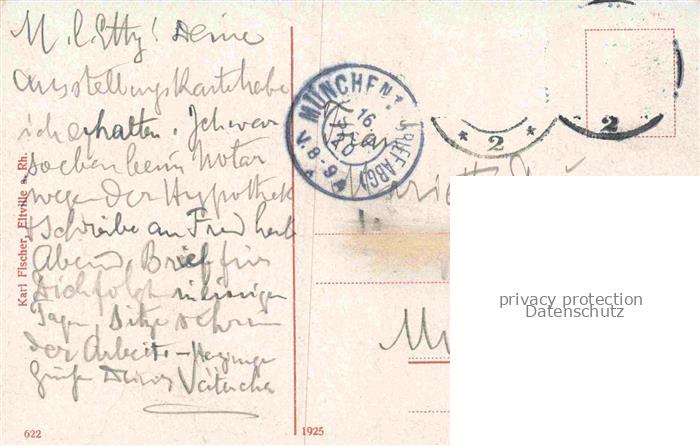 M. l. Etty! Deine
Ausstellungskarte habe
ich erhalten. Ich war
soeben beim Notar
wegen der Hypothek
+ schreibe an Fred heut
Abend. Brief für
Dich folgt in einigen
Tagen. Sitze schon
der Arbeit -
Grüße Deines Väterchen
Karl Fischer, Eltville a. Rh.
622
1925
MÜNCHEN 1.
BRIEFABG.
16
V. 8-9
* 2 *
2
Frau
privacy protection
Datenschutz